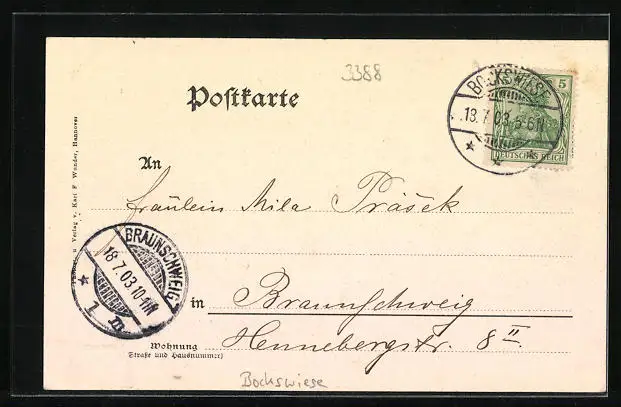 3388
BOCKSWIESE
18.7.03.5-6N
5
DEUTSCHES REICH
Postkarte
An
Fräulein Mila Prášek
BRAUNSCHWEIG
18.7.03.10-11N
1 m
in Braunschweig
Hennebergstr. 8 II.
Wohnung
(Straße und Hausnummer)
u Verlag v. Karl F. Wunder, Hannover
Bockswiese